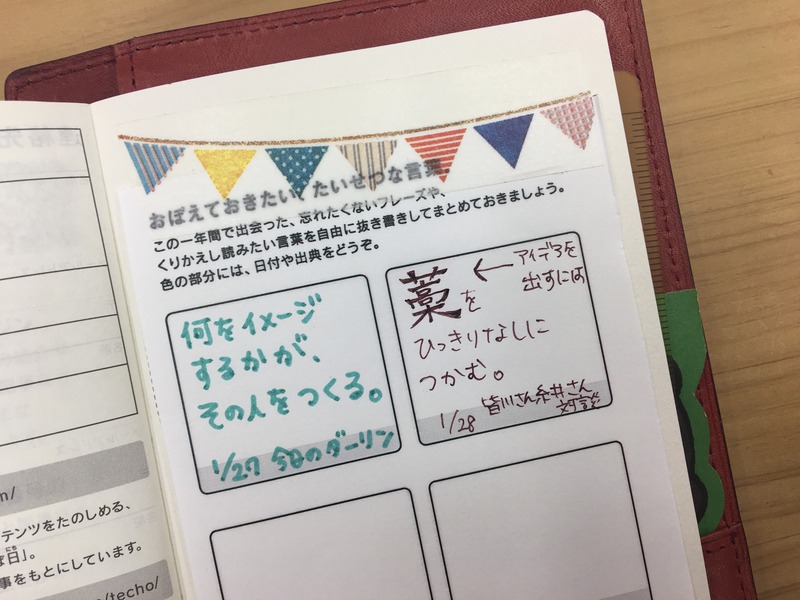 おぼえておきたい、たいせつな言葉。
この一年間で出会った、忘れたくないフレーズや、
くりかえし読みたい言葉を自由に抜き書きしてまとめておきましょう。
色の部分には、日付や出典をどうぞ。
何をイメージ
するかが、
その人をつくる。
1/27 今日のダーリン
藁を ← アイデアを
出すには
ひっきりなしに
つかむ。
1/28 皆川さん糸井さん
対談
連絡先
m/
テンツをたのしめる、
日」。
にち
事をもとにしています。
/techo/